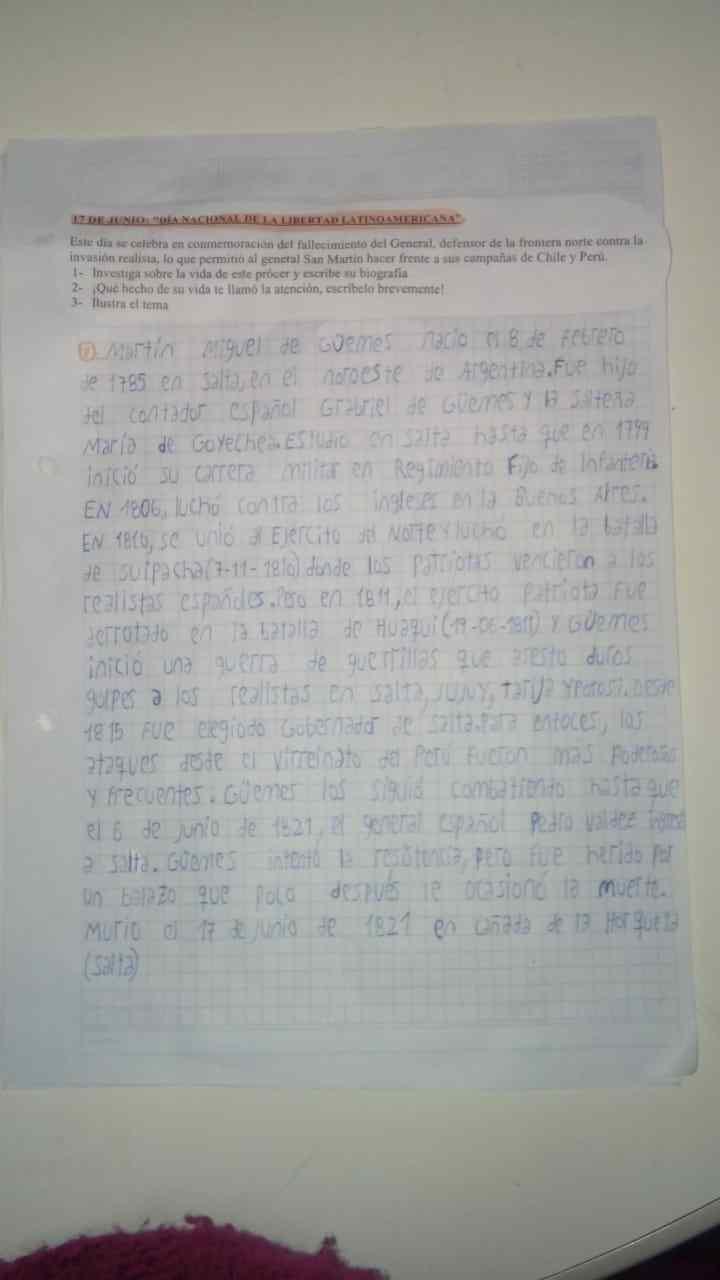 17 DE JUNIO: "DÍA NACIONAL DE LA LIBERTAD LATINOAMERICANA"
Este día se celebra en conmemoración del fallecimiento del General, defensor de la frontera norte contra la
invasión realista, lo que permitió al general San Martín hacer frente a sus campañas de Chile y Perú.
1- Investiga sobre la vida de este prócer y escribe su biografía
2- ¡Qué hecho de su vida te llamó la atención, escríbelo brevemente!
3- Ilustra el tema
Martín Miguel de Güemes nacio el 8 de Febrero
de 1785 en salta, en el noroeste de Argentina. Fue hijo
del contador español Grabriel de Güemes y la salteña
María de Goyechea. Estudio en salta hasta que en 1799
inició su carrera militar en Regimiento Fijo de Infantería
EN 1806, luchó contra los ingleses en la Buenos Aires.
EN 1810, se unió al Ejercito del Norte y lucho en la batalla
de suipacha (7-11-1810) donde los patriotas vencieron a los
realistas españoles. Pero en 1811, el ejercito patriota fue
derrotado en la batalla de Huaqui (19-06-1811) y Güemes
inició una guerra de guerrillas que asesto duros
golpes a los realistas en salta, Jujuy, Tarija y Potosí. Desde
1815 fue elegiodo Gobernador de salta. Para entoces, los
ataques desde el virreinato del Perú fueron mas poderosos
y frecuentes. Güemes los siguió combatiendo hasta que
el 6 de junio de 1821, el general español Pedro Valdez
a salta. Güemes intentó la resistencia, pero fue herido por
un balazo que poco después le ocasionó la muerte.
Murio el 17 de junio de 1821 en cañada de la Horqueta
(salta)